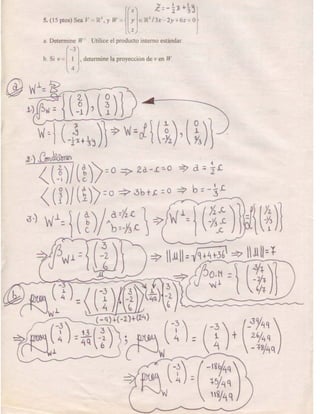 z=-½x+⅓y
5. (15 ptos) Sea V = ℝ³, y W = {(x y z) ∈ ℝ³ / 3x - 2y + 6z = 0}
a. Determine W⊥. Utilice el producto interno estándar.
b. Si v = (-3 1 4), determine la proyección de v en W
a) W⊥=
1-) βw = {(2 0 -1), (0 3 1)}
W = {(x y -½x+⅓y)} ⇒ W = L{(1 0 -1/2), (0 1 1/3)}
2-) Condiciones
⟨(2 0 -1)/(a b c)⟩ = 0 ⇒ 2a-c=0 ⇒ a = ½c
⟨(0 3 1)/(a b c)⟩ = 0 ⇒ 3b+c=0 ⇒ b = -⅓c
3-) W⊥ = {(a b c) / a=½c ∧ b=-⅓c} ⇒ W⊥ = {(½c -⅓c c)} = L{(1/2 -1/3 1)}
⇒ βW⊥ = {(3 -2 6)} ⇒ ||u|| = √9+4+36 ⇒ ||u||=7
⇒ βO.N W⊥ = {(3/7 -2/7 6/7)}
b) proy W⊥ (-3 1 4) = ⟨(-3 1 4)(3 -2 6)⟩ 1/49 (3 -2 6)
(-9)+(-2)+(24)
⇒ proy W⊥ (-3 1 4) = 13/49 (3 -2 6) ; proy W (-3 1 4) = (-3 1 4) + (-39/49 26/49 -78/49)
⇒ proy W (-3 1 4) = (-186/49 75/49 118/49)